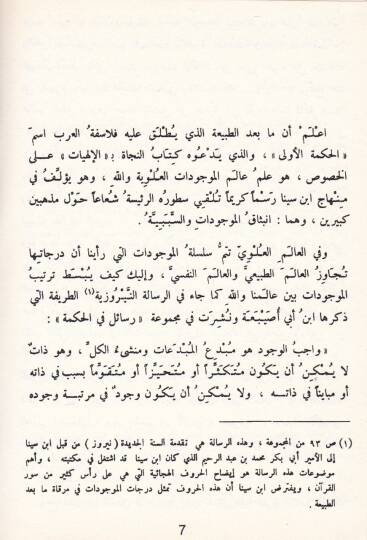 اعْلَمْ أن ما بعد الطبيعة الذي يُطْلَق عليه فلاسفةُ العرب اسمَ
« الحكمة الأولى » ، والذي يَدْعُوه كِتابُ النجاة بـ « الإلهيات » على
الخصوص ، هو علمُ عالَم الموجودات العُلْوِية والله ، وهو يؤلِّفُ في
مِنْهاج ابن سينا رَسْماً كريماً تُلْقِي سطورُه الرئيسةُ شُعاعاً حَوْل مذهبين
كبيرين ، وهما : انبثاقُ الموجودات والسَّبَبِيَّةُ .
وفي العالَم العُلْوِيّ تتمُّ سلسلةُ الموجودات التي رأينا أن درجاتِها
تُجاوِزُ العالَمَ الطبيعيَّ والعالَمَ النفسيَّ ، وإليك كيف يُبْسَط ترتيبُ
الموجودات بين عالَمنا والله كما جاء في الرسالة النَّيْرُوزية(١) الطريفة التي
ذكرها ابنُ أبي أُصَيْبِعَة ونُشِرَت في مجموعة « رسائل في الحكمة » :
« واجبُ الوجود هو مُبْدِعُ المُبْدَعات ومنشىءُ الكلِّ ، وهو ذاتٌ
لا يُمْكِنُ أن يَكون مُتَكَثِّراً أو مُتَحَيِّزاً أو مُتَقَوِّماً بسبب في ذاته
أو مبايناً في ذاته ، ولا يُمْكِنُ أن يكون وجودٌ في مرتبة وجوده
(١) ص ٩٣ من المجموعة ، وهذه الرسالة هي تقدمة السنة الجديدة ( نيروز ) من قبل ابن سينا
إلى الأمير أبي بكر محمد بن عبد الرحيم الذي كان ابن سينا قد اشتغل في مكتبته ، وأهم
موضوعات هذه الرسالة هو إيضاح الحروف الهجائية التي هي على رأس كثير من سور
القرآن ، ويفترض ابن سينا أن هذه الحروف تمثل درجات الموجودات في مرقاة ما بعد
الطبيعة .
7